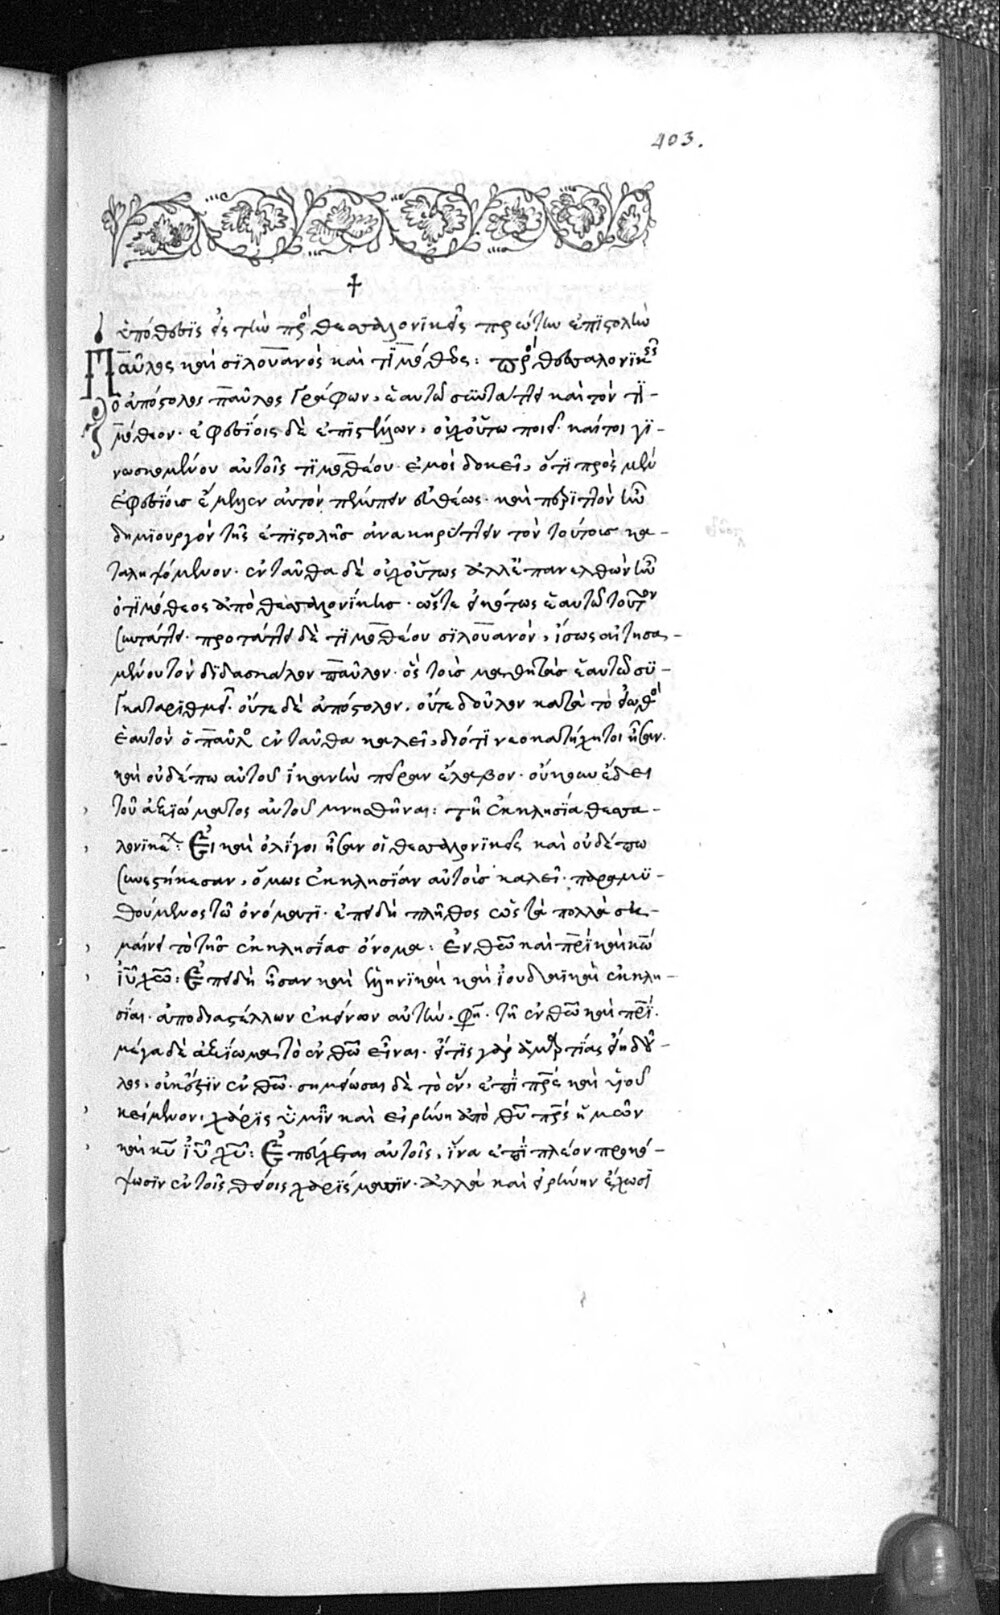 403.
†
ὑπόθεσις εἰς τὴν πρὸς θεσσαλονικεῖς πρώτην ἐπιστολὴν
Παῦλος καὶ σιλουανὸς καὶ τιμόθεος: πρὸς θεσσαλονικεῖς
ὁ ἀπόστολος παῦλος γράφων, ἑαυτῶ συντάττει καὶ τὸν τι-
μόθεον. ἐφεσίοις δὲ ἐπιστέλλων, οὐχ οὕτω ποιεῖ. καίτοι γι-
νωσκομένου αὐτοῖς τιμοθέου. ἐμοὶ δοκεῖ, ὅτι πρὸς μὲν
ἐφεσίοις ἔμελλεν αὐτὸν πέμπειν εὐθέως. καὶ περιττὸν ἦν
δημιουργὸν τῆς ἐπιστολῆς ἀνακηρύττειν τὸν τούτοις κα-
ταληψόμενον. ἐνταῦθα δὲ οὐχ οὕτως ἀλλ' ἐπανελθὼν ἦν
ὁ τιμόθεος ἀπὸ θεσσαλονίκης. ὥστε εἰκότως ἑαυτῶ τοῦτον
συντάττει. προτάττει δὲ τιμοθέου σιλουανὸν, ἴσως αἰτησα-
μένου τὸν διδάσκαλον παῦλον. ὃς τοὺς μαθητὰς ἑαυτῶ συ-
γκαταριθμεῖ. οὔτε δὲ ἀπόστολον, οὔτε δοῦλον κατὰ τὸ εἰωθὸς
ἑαυτὸν ὁ παῦλος ἐνταῦθα καλεῖ, διότι νεοκατήχητοι ἦσαν.
καὶ οὐδέπω αὐτοῦ ἱκανὴν πεῖραν ἔλαβον. οὔκουν ἔδει
τοῦ ἀξιώματος αὐτοῦ μνησθῆναι: τῆ ἐκκλησία θεσσα-
λονικέων: Εἰ καὶ ὀλίγοι ἦσαν οἱ θεσσαλονικεῖς καὶ οὐδέπω
συνεστήκεσαν, ὅμως ἐκκλησίαν αὐτοὺς καλεῖ. παραμυ-
θούμενος τῶ ὀνόματι. ἐπειδὴ πλῆθος ὡς τὰ πολλὰ ση-
μαίνει τὸ τῆς ἐκκλησίας ὄνομα: Ἐν θεῶ καὶ πρὶ καὶ κῶ
ιῦ χῶ: Ἐπειδὴ ἦσαν καὶ ἑλληνικαὶ καὶ ἰουδαϊκαὶ ἐκκλη-
σίαι. ἀποδιαστέλλων ἐκείνων αὐτὴν, φη. τῆ ἐν θῶ καὶ πρί.
μέγα δὲ ἀξίωμα τὸ ἐν θῶ εἶναι. εἴ τις γὰρ ἁμαρτίας εἴη δοῦ-
λος, οὐκ ἔστιν ἐν θῶ. σημείωσαι δὲ τὸ ἐν, ἐπὶ πρς καὶ υἱοῦ
κείμενον, χάρις ὑμῖν καὶ εἰρήνη ἀπὸ θῦ πρς ἡμῶν
καὶ κῦ ιῦ χῦ: Ἐπεύχεται αὐτοῖς, ἵνα ἐπὶ πλέον προκό-
ψωσιν ἐν τοῖς θείοις χαρίσμασιν. ἀλλὰ καὶ εἰρήνην ἔχωσι